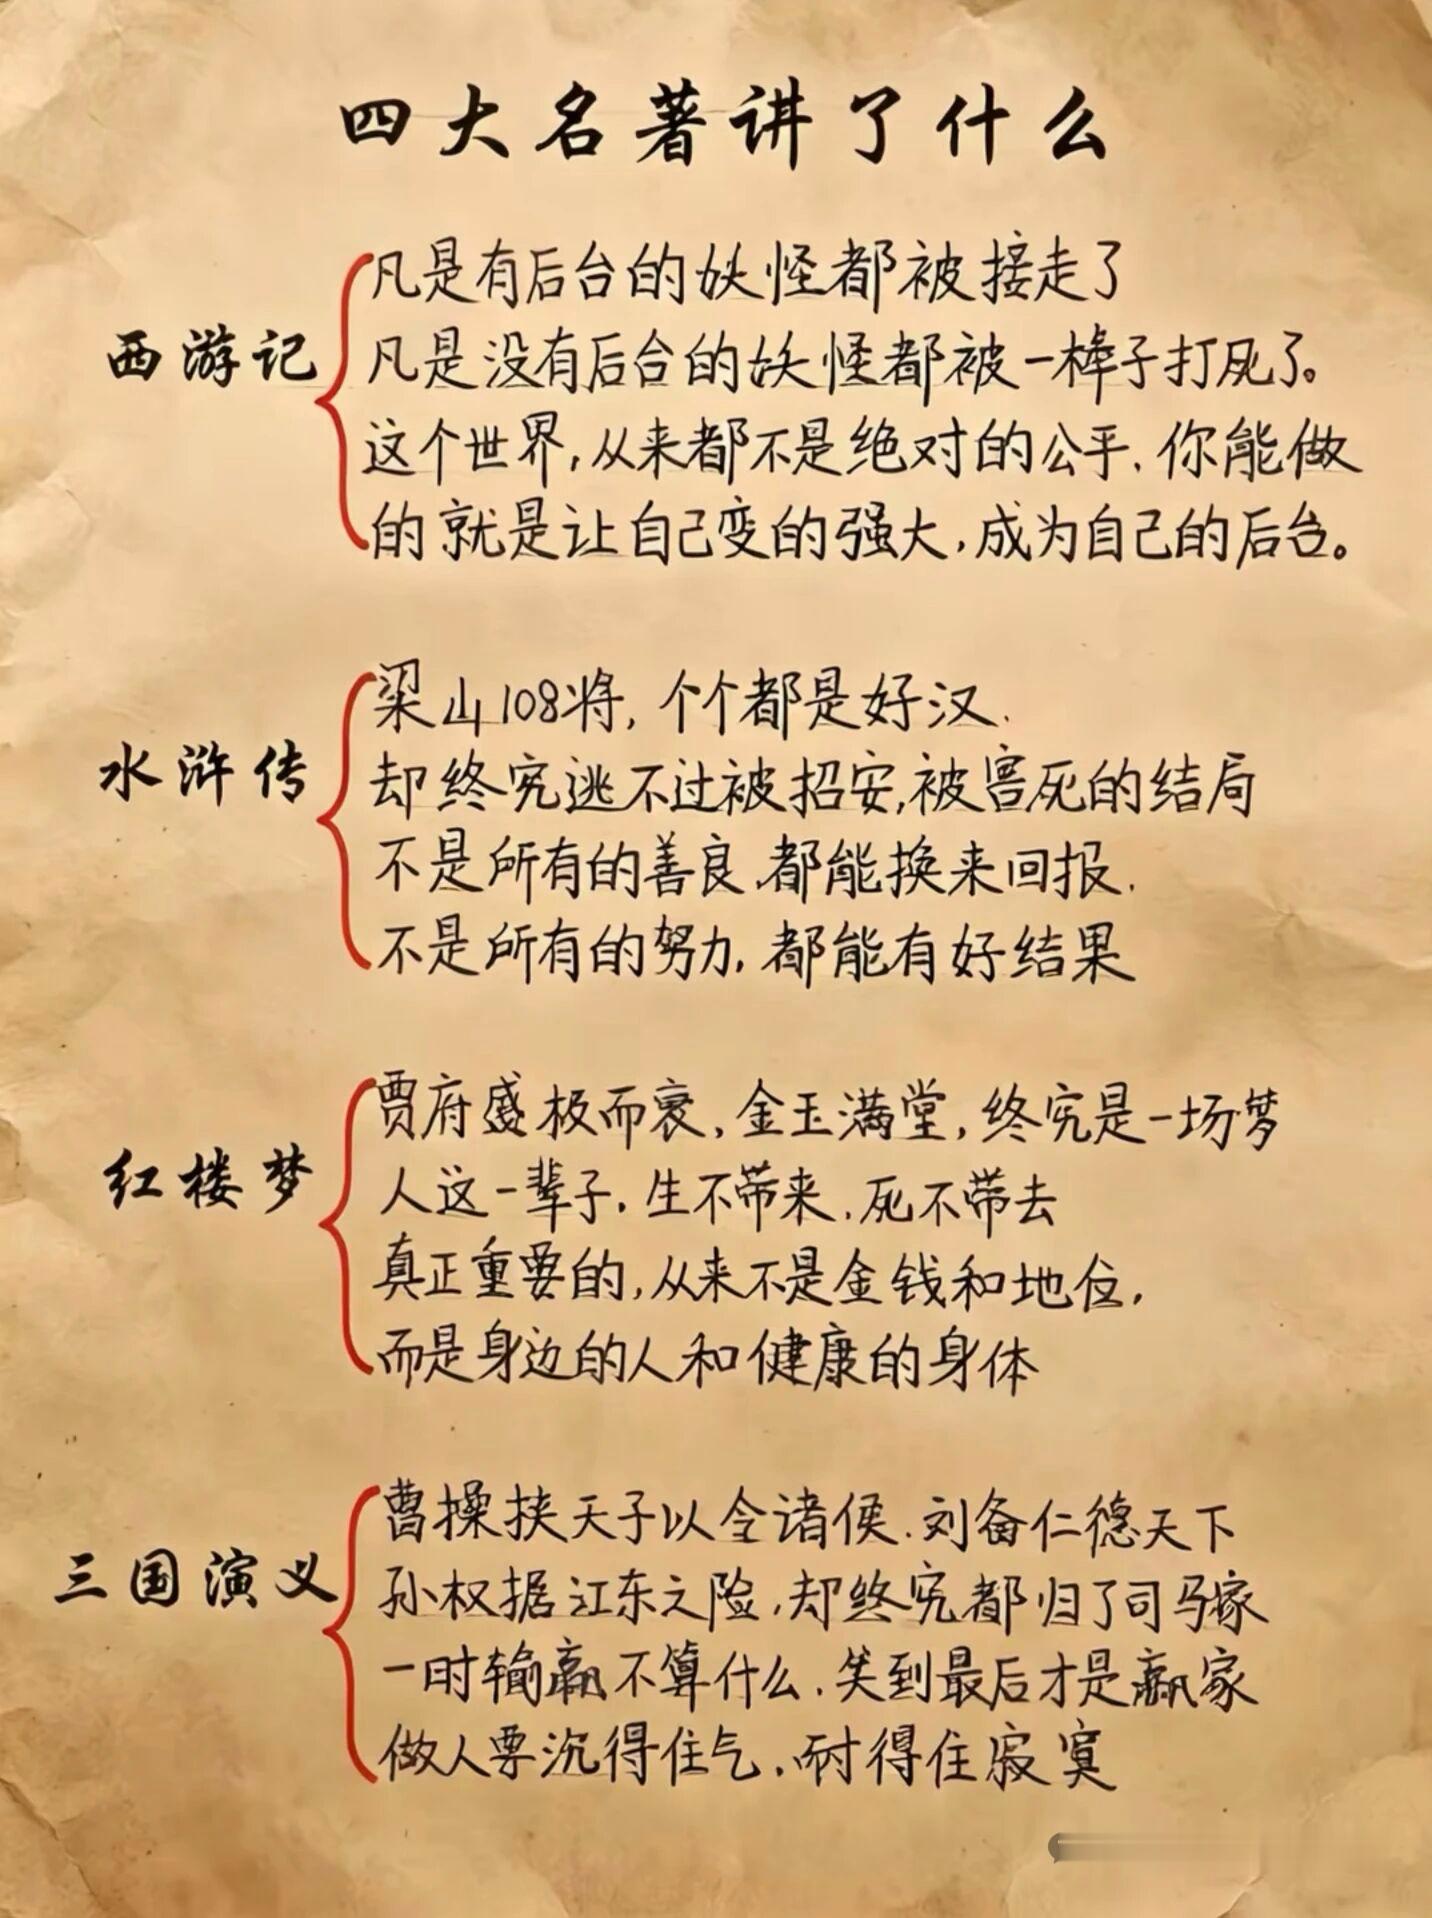 四大名著讲了什么
西游记
凡是有后台的妖怪都被接走了
凡是没有后台的妖怪都被一棒子打死了。
这个世界,从来都不是绝对的公平.你能做
的就是让自己变的强大,成为自己的后台。
水浒传
梁山108将,个个都是好汉.
却终究逃不过被招安,被害死的结局
不是所有的善良.都能换来回报.
不是所有的努力,都能有好结果
红楼梦
贾府盛极而衰,金玉满堂,终究是一场梦
人这一辈子.生不带来.死不带去
真正重要的,从来不是金钱和地位,
而是身边的人和健康的身体
三国演义
曹操挟天子以令诸侯.刘备仁德天下
孙权据江东之险,却终究都归了司马家
一时输赢不算什么.笑到最后才是赢家
做人要沉得住气.耐得住寂寞